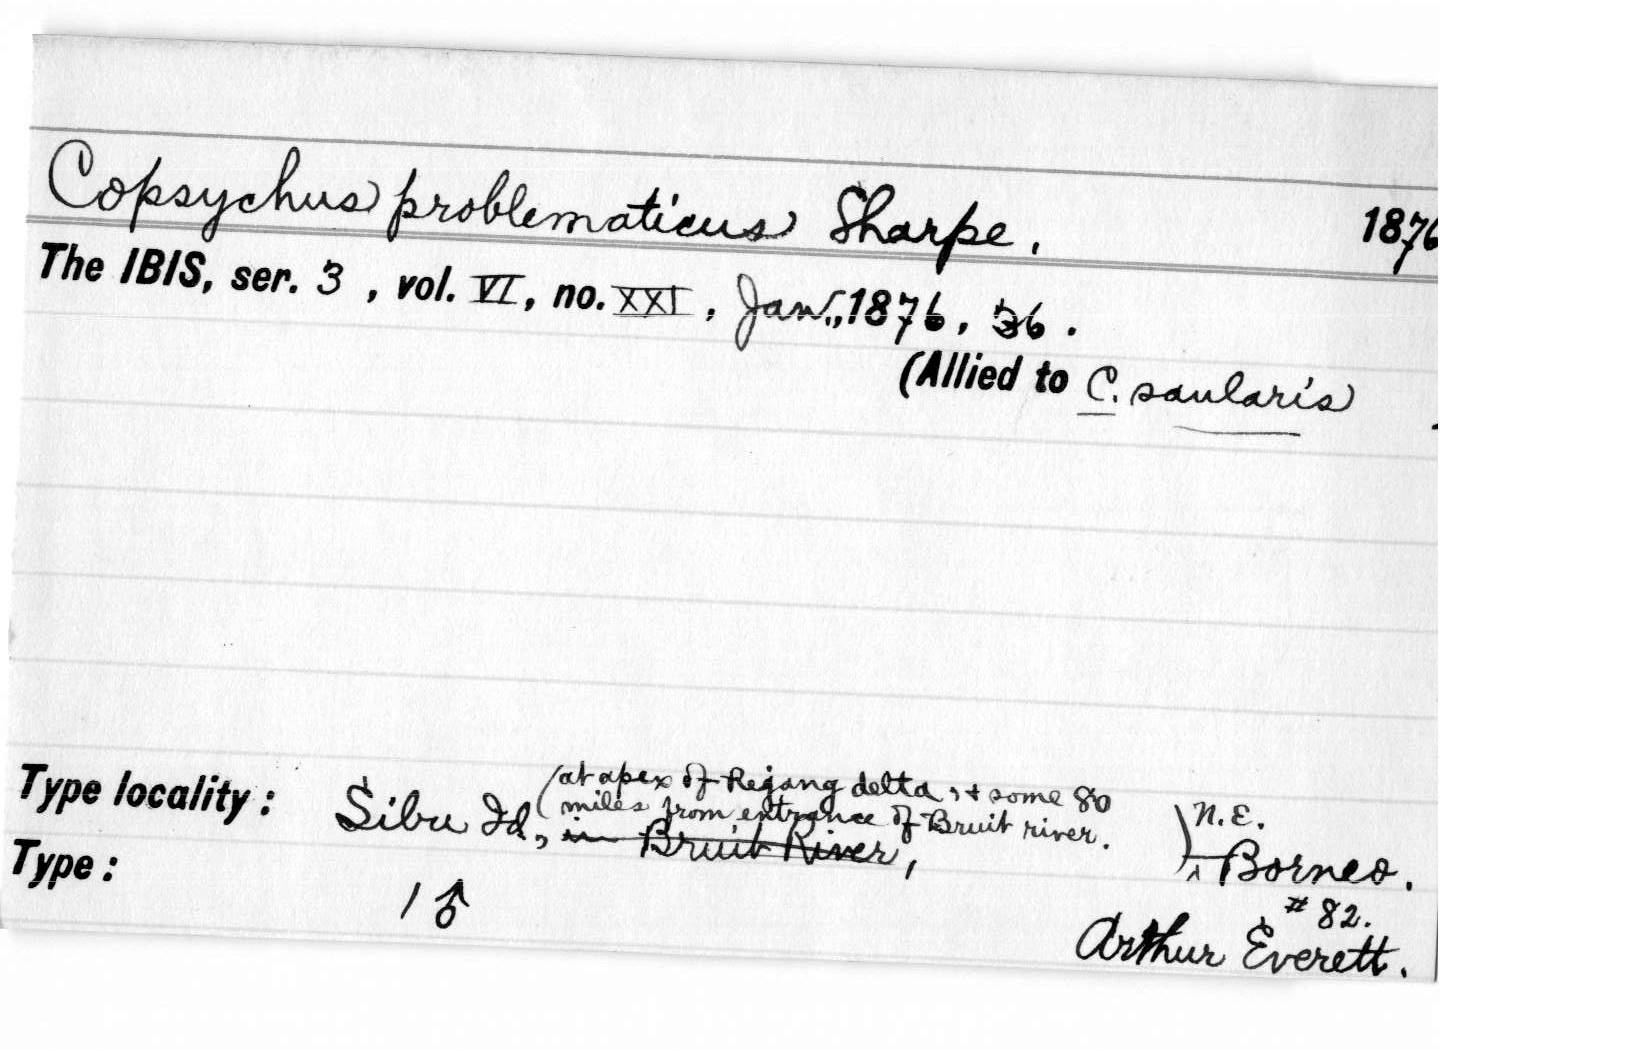 Copsychus problematicus Sharpe. 1876
The IBIS, ser. 3, vol. VI, no. XXI, Jan., 1876, 36.
(Allied to C. saularis
(at apex of Rejang delta, & some 80
miles from entrance of Bruit river. ) N.E.
Type locality: Sibu Id., in Bruit River, Borneo.
Type: 1 ♂ # 82.
Arthur Everett.